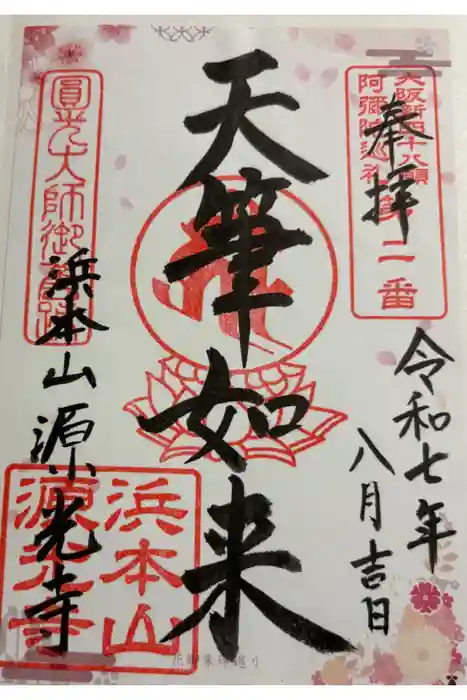 大阪新四十八願
阿彌陀巡礼第二番
奉拝
令和七年
八月吉日
天筆如来
圓光大師御舊跡
浜本山源光寺
浜本山
源光寺
花御朱印巡り